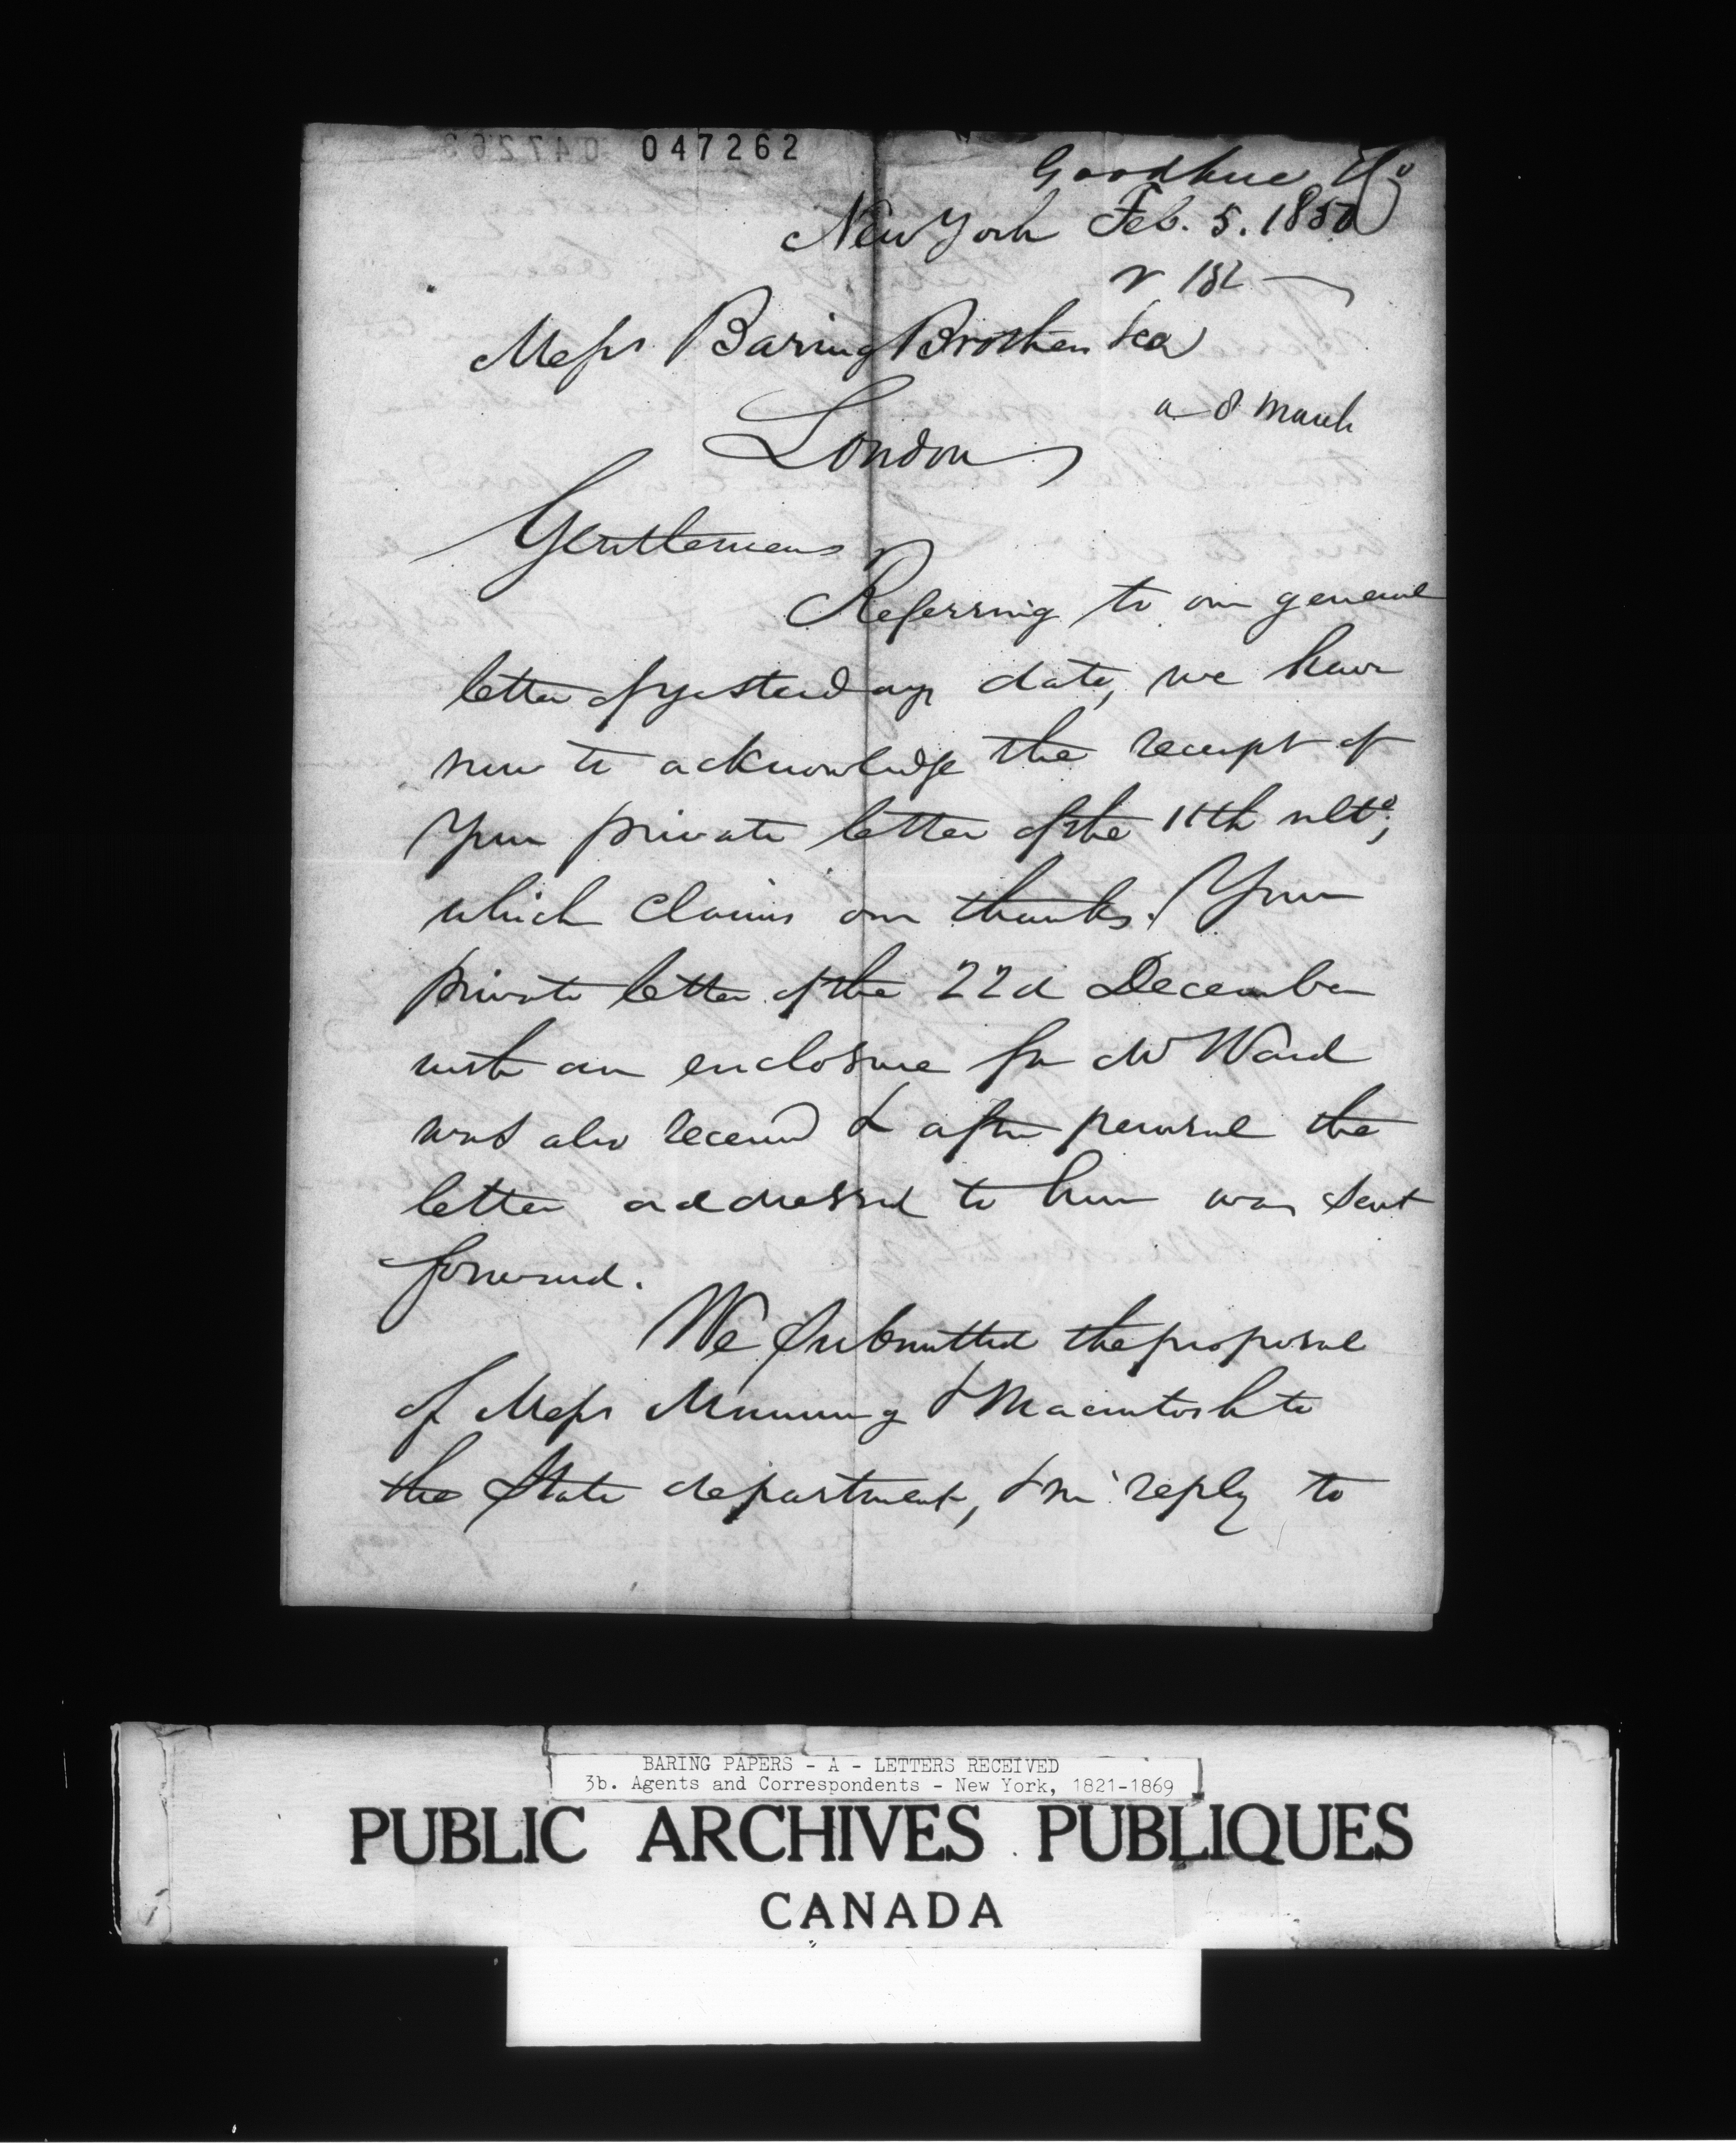 047262
Goodhue & Co
New York Feb. 5. 1850
r 182
Messrs Baring Brothers & Co
a 8 March
London
Gentlemen
Referring to our general
letter of yesterdays date, we have
now to acknowledge the receipt of
your private letter of the 11th ulto,
which claims our thanks. Your
private letter of the 22d December
with an enclosure for Mr Ward
was also received & after perusal the
letter addressed to him was sent
forward.
We submitted the proposal
of Messrs Manning & Macintosh to
the State department, & in reply to
BARING PAPERS - A - LETTERS RECEIVED
3b. Agents and Correspondents - New York, 1821-1869
PUBLIC ARCHIVES PUBLIQUES
CANADA